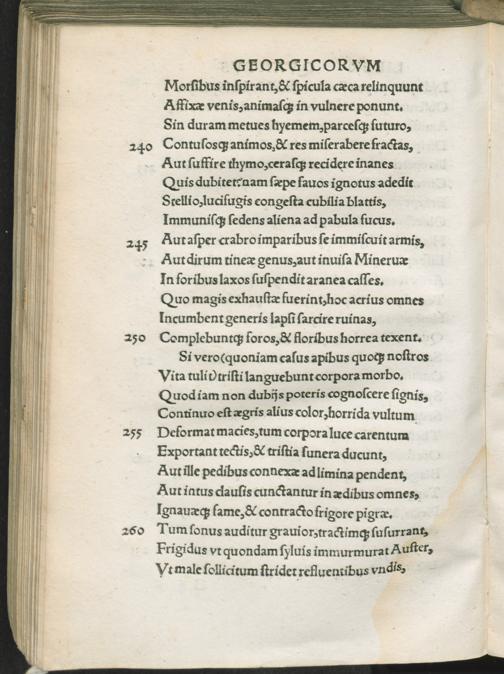 GEORGICORVM
Morsibus inspirant,& spicula cæca relinquunt
Affixæ venis,animasq; in vulnere ponunt.
Sin duram metues hyemem,parcesq; futuro,
240 Contusosq; animos,& res miserabere fractas,
Aut suffire thymo,cerasq; recidere inanes
Quis dubitet:nam sæpe fauos ignotus adedit
Stellio,lucifugis congesta cubilia blattis,
Immunisq; sedens aliena ad pabula fucus.
245 Aut asper crabro imparibus se immiscuit armis,
Aut dirum tineæ genus,aut inuisa Mineruæ
In foribus laxos suspendit aranea casses.
Quo magis exhaustæ fuerint,hoc acrius omnes
Incumbent generis lapsi sarcire ruinas,
250 Complebuntq; foros,& floribus horrea texent.
Si vero(quoniam casus apibus quoq; nostros
Vita tulit)tristi languebunt corpora morbo.
Quod iam non dubijs poteris cognoscere signis,
Continuo est ægris alius color,horrida vultum
255 Deformat macies,tum corpora luce carentum
Exportant tectis,& tristia funera ducunt,
Aut ille pedibus connexæ ad limina pendent,
Aut intus clausis cunctantur in ædibus omnes,
Ignauæq; fame,& contracto frigore pigræ.
260 Tum sonus auditur grauior,tractimq; susurrant,
Frigidus vt quondam syluis immurmurat Auster,
Vt male sollicitum stridet refluentibus vndis,